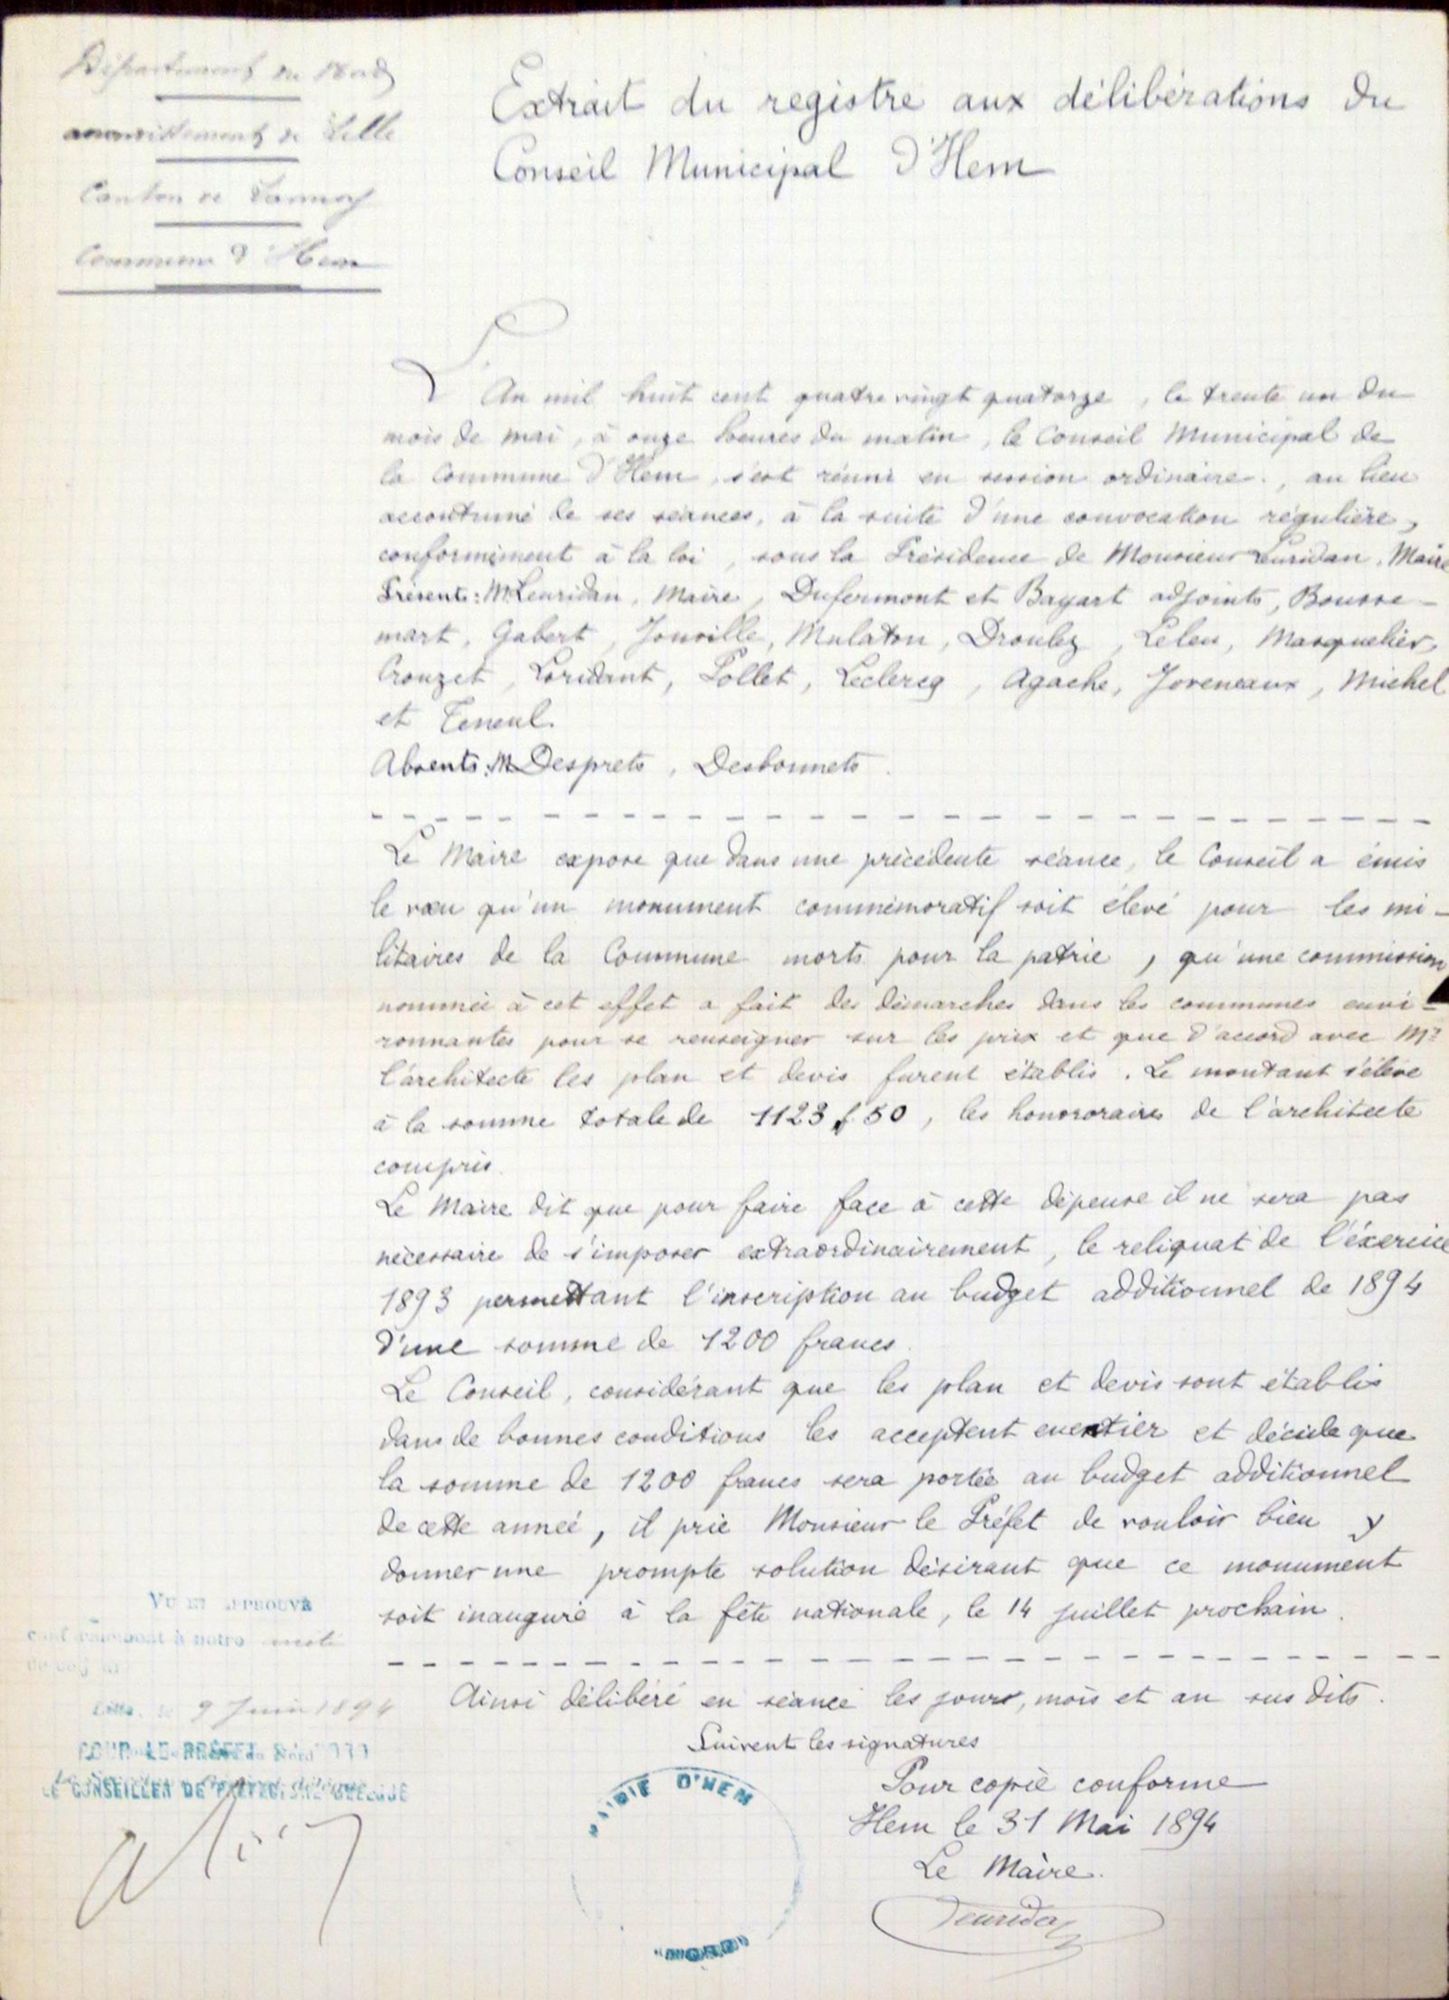 Département du Nord
arrondissement de Lille
Canton de Lannoy
Commune d'Hem
Extrait du registre aux délibérations du
Conseil Municipal d'Hem
L'An mil huit cent quatre vingt quatorze, le trente un du
mois de mai, à onze heures du matin, le Conseil Municipal de
la Commune d'Hem, s'est réuni en session ordinaire, au lieu
accoutumé de ses séances, à la suite d'une convocation régulière,
conformément à la loi, sous la Présidence de Monsieur Leuridan, Maire
Présents: M Leuridan, Maire, Dufermont et Bayart adjoints, Bousse-
mart, Gabert, Jouville, Mulaton, Droulez, Leleu, Masquelier,
Crouzet, Loridant, Pollet, Leclercq, Agache, Joveneaux, Michel
et Teneul.
Absents: M Desprets, Desbonnets.
Le Maire expose que dans une précédente séance, le Conseil a émis
le vœu qu'un monument commémoratif soit élevé pour les mi-
litaires de la Commune morts pour la patrie, qu'une commission
nommée à cet effet a fait des démarches dans les communes envi-
ronnantes pour se renseigner sur les prix et que d'accord avec Mr
l'architecte les plan et devis furent établis. Le montant s'élève
à la somme totale de 1123 f 50, les honororaires de l'architecte
compris.
Le Maire dit que pour faire face à cette dépense il ne sera pas
nécessaire de s'imposer extraordinairement, le reliquat de l'éxercice
1893 permettant l'inscription au budget additionnel de 1894
d'une somme de 1200 francs.
Le Conseil, considérant que les plan et devis sont établis
dans de bonnes conditions les acceptent en entier et décide que
la somme de 1200 francs sera portée au budget additionnel
de cette année, il prie Monsieur le Préfet de vouloir bien y
donner une prompte solution désirant que ce monument
soit inauguré à la fête nationale, le 14 juillet prochain.
Ainsi délibéré en séance les jours, mois et an sus dits.
Suivent les signatures
Pour copie conforme
Hem le 31 Mai 1894
Le Maire.
Leuridan
VU ET APPROUVÉ
conformément à notre
Lille, le 9 Juin 1894
POUR LE PRÉFET DU NORD
LE CONSEILLER DE PRÉFECTURE DÉLÉGUÉ
MAIRIE D'HEM
(NORD)